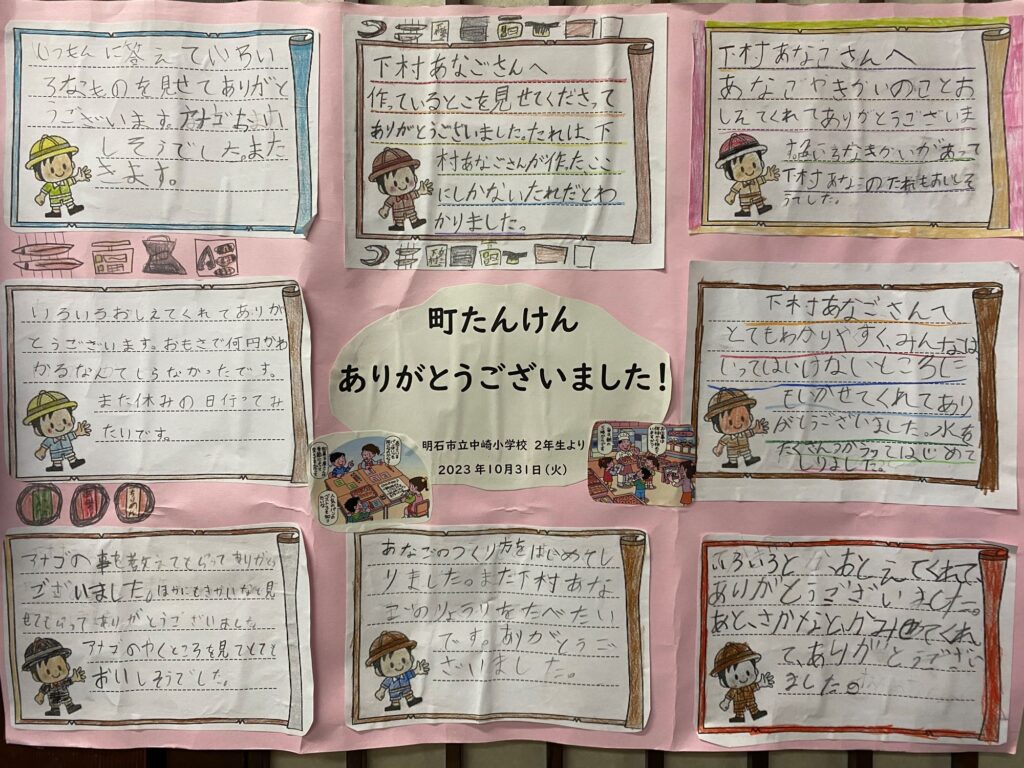 しつもんに答えていろい
ろなものを見せてありがと
うございます。アナゴおい
しそうでした。また
きます。
下村あなごさんへ
作っているとこを見せてくださって
ありがとうございました。たれは、下
村あなごさんが作た、ここ
にしかないたれだとわ
かりました。
下村あなごさんへ
あなごやきかいのことお
しえてくれてありがとうございま
す。いろなきかいがあって
下村あなごのたれもおいしそ
うでした。
いろいろおしえてくれてありが
とうございます。おもさで何円かわ
かるなんてしらなかったです。
また休みの日行ってみ
たいです。
町たんけん
ありがとうございました!
明石市立中崎小学校 2年生より
2023年10月31日(火)
下村あなごさんへ
とてもわかりやすく、みんなは
いってはいけないところに
もいかせてくれてあり
がとうございました。水を
たくさんつかうってはじめて
しりました。
アナゴの事を教えてもらってありがとう
ございました。ほかにもきかいなど見
せてもらってありがとうございました
アナゴのやくところを見てとても
おいしそうでした。
あなごのつくり方をはじめてし
りました。また下村あな
ごのりょうりをたべたい
です。ありがとうご
ざいました。
いろいろと おしえてくれて、
ありがとうございました。
あと、さかなとか、みせてくれ
て、ありがとうござい
ました。